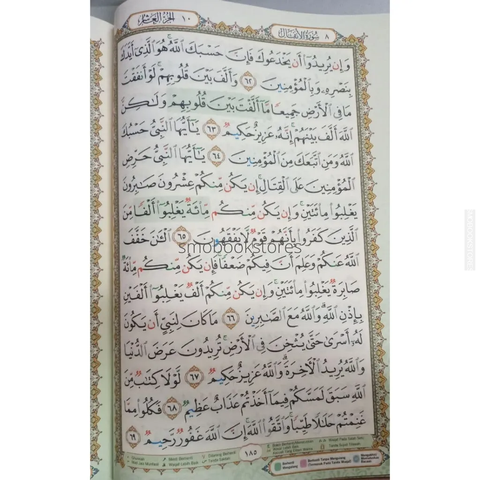 ٨ سُورَةُ الْأَنْفَالِ الجزء العاشر ١٠
وَإِن يُرِيدُوٓا۟ أَن يَخْدَعُوكَ فَإِنَّ حَسْبَكَ ٱللَّهُ ۚ هُوَ ٱلَّذِىٓ أَيَّدَكَ
بِنَصْرِهِۦ وَبِٱلْمُؤْمِنِينَ ٦٢ وَأَلَّفَ بَيْنَ قُلُوبِهِمْ ۚ لَوْ أَنفَقْتَ
مَا فِى ٱلْأَرْضِ جَمِيعًا مَّآ أَلَّفْتَ بَيْنَ قُلُوبِهِمْ وَلَـٰكِنَّ
ٱللَّهَ أَلَّفَ بَيْنَهُمْ ۚ إِنَّهُۥ عَزِيزٌ حَكِيمٌ ٦٣ يَـٰٓأَيُّهَا ٱلنَّبِىُّ حَسْبُكَ
ٱللَّهُ وَمَنِ ٱتَّبَعَكَ مِنَ ٱلْمُؤْمِنِينَ ٦٤ يَـٰٓأَيُّهَا ٱلنَّبِىُّ حَرِّضِ
ٱلْمُؤْمِنِينَ عَلَى ٱلْقِتَالِ ۚ إِن يَكُن مِّنكُمْ عِشْرُونَ صَـٰبِرُونَ
يَغْلِبُوا۟ مِا۟ئَتَيْنِ ۚ وَإِن يَكُن مِّنكُم مِّا۟ئَةٌ يَغْلِبُوٓا۟ أَلْفًا مِّنَ
ٱلَّذِينَ كَفَرُوا۟ بِأَنَّهُمْ قَوْمٌ لَّا يَفْقَهُونَ ٦٥ ٱلْـَٔـٰنَ خَفَّفَ
smobookstores
ٱللَّهُ عَنكُمْ وَعَلِمَ أَنَّ فِيكُمْ ضَعْفًا ۚ فَإِن يَكُن مِّنكُم مِّا۟ئَةٌ
صَابِرَةٌ يَغْلِبُوا۟ مِا۟ئَتَيْنِ ۚ وَإِن يَكُن مِّنكُمْ أَلْفٌ يَغْلِبُوٓا۟ أَلْفَيْنِ
بِإِذْنِ ٱللَّهِ ۗ وَٱللَّهُ مَعَ ٱلصَّـٰبِرِينَ ٦٦ مَا كَانَ لِنَبِىٍّ أَن يَكُونَ
لَهُۥٓ أَسْرَىٰ حَتَّىٰ يُثْخِنَ فِى ٱلْأَرْضِ ۚ تُرِيدُونَ عَرَضَ ٱلدُّنْيَا
وَٱللَّهُ يُرِيدُ ٱلْـَٔاخِرَةَ ۗ وَٱللَّهُ عَزِيزٌ حَكِيمٌ ٦٧ لَّوْلَا كِتَـٰبٌ مِّنَ
ٱللَّهِ سَبَقَ لَمَسَّكُمْ فِيمَآ أَخَذْتُمْ عَذَابٌ عَظِيمٌ ٦٨ فَكُلُوا۟ مِمَّا
غَنِمْتُمْ حَلَـٰلًا طَيِّبًا ۚ وَٱتَّقُوا۟ ٱللَّهَ ۚ إِنَّ ٱللَّهَ غَفُورٌ رَّحِيمٌ ٦٩
١٨٥